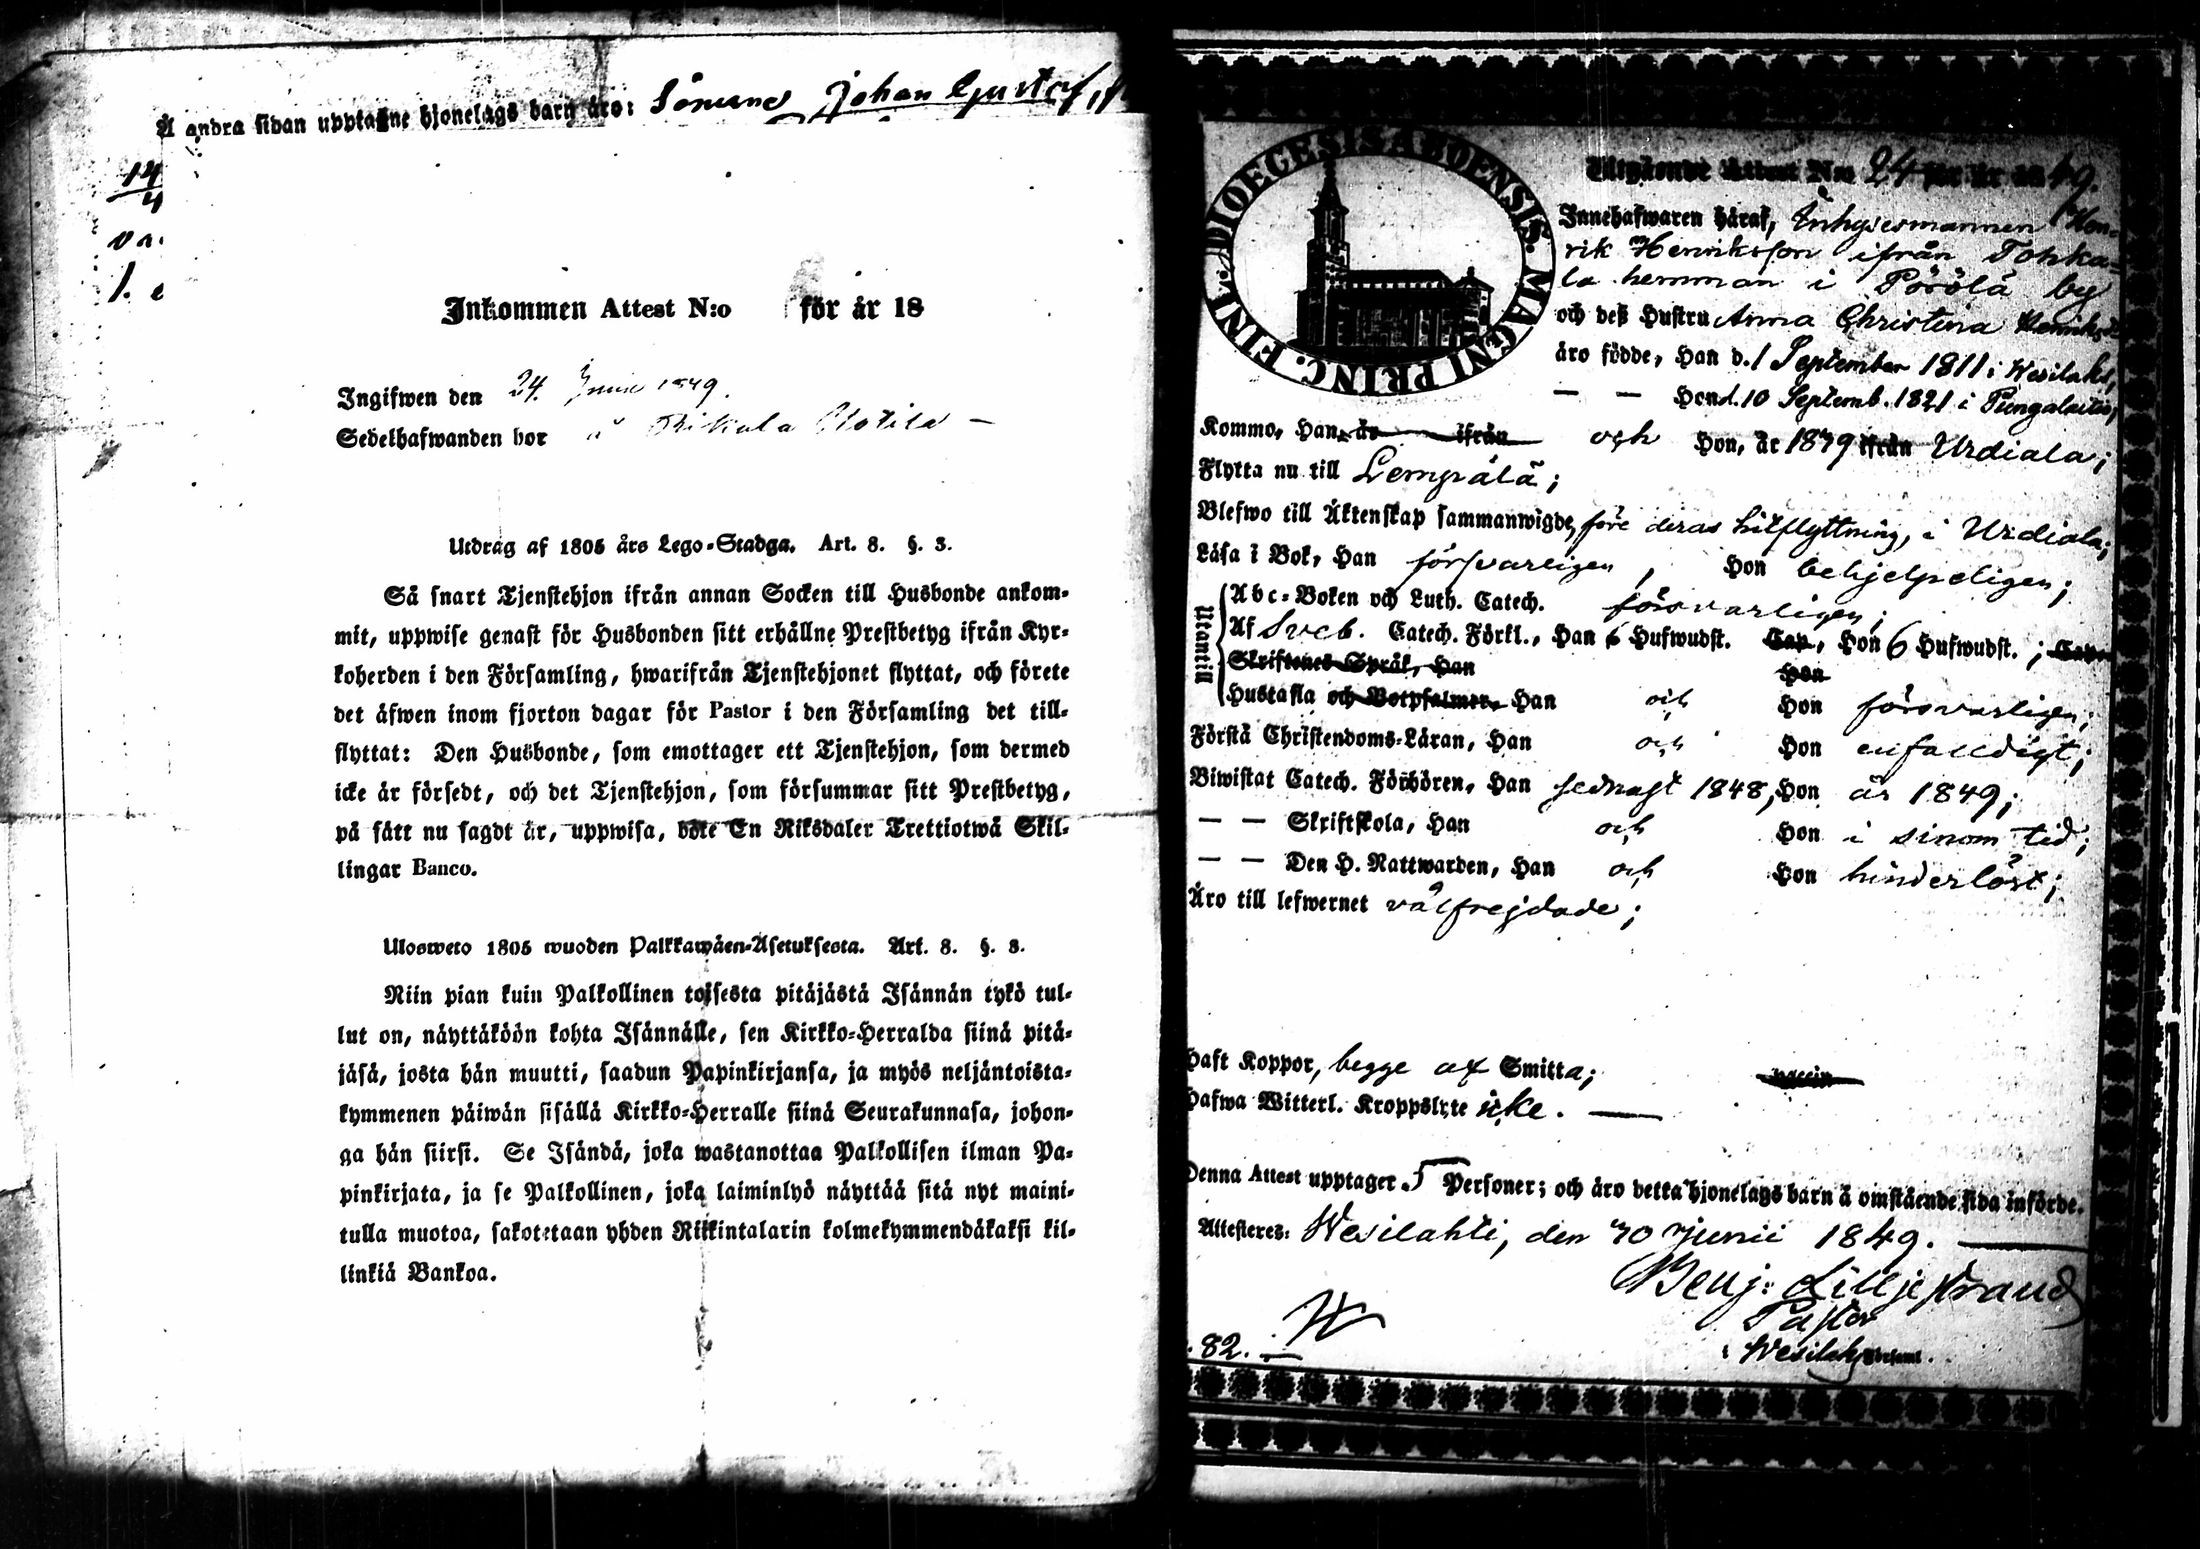 Å andra sidan upptagne hjonelags barn äro: Sönerne Johan Gustaf,
14
4
va
1. e
Inkommen Attest N:o för år 18
Ingifwen den 24. Junii 1849.
Sedelhafwanden bor å
Utdrag af 1805 års Lego-Stadga. Art. 8. §. 3.
Så snart Tjenstehjon ifrån annan Socken till Husbonde ankom-
mit, uppwise genast för Husbonden sitt erhållne Prestbetyg ifrån Kyr-
koherden i den Församling, hwarifrån Tjenstehjonet flyttat, och förete
det äfwen inom fjorton dagar för Pastor i den Församling det till-
flyttat: Den Husbonde, som emottager ett Tjenstehjon, som dermed
icke är försedt, och det Tjenstehjon, som försummar sitt Prestbetyg,
på sätt nu sagdt är, uppwisa, böte En Riksdaler Trettiotwå Skil-
lingar Banco.
Ulosweto 1805 wuoden Palkkawäen-Asetuksesta. Art. 8. §. 3.
Niin pian kuin Palkollinen toisesta pitäjästä Isännän tykö tul-
lut on, näyttäköön kohta Isännälle, sen Kirkko-Herralda siinä pitä-
jäsä, josta hän muutti, saadun Papinkirjansa, ja myös neljäntoista-
kymmenen päiwän sisällä Kirkko-Herralle siinä Seurakunnasa, johon-
ga hän siirsi. Se Isändä, joka wastanottaa Palkollisen ilman Pa-
pinkirjata, ja se Palkollinen, joka laiminlyö näyttää sitä nyt maini-
tulla muotoa, sakotetaan yhden Riikintalarin kolmekymmendäkaksi kil-
linkiä Bankoa.
DIOECESIS ABOENSIS. MAGNI PRINC. FINL.
Utgående Attest N:o 24 för år 1849.
Innehafwaren häraf, Inhysesmannen Hen-
rik Henriksson ifrån Tohka-
la hemman i Pöröla by
och deß Hustru Anna Christina
äro födde, Han d. 1 September 1811 i Wesilaks,
— — Hon d. 10 Septemb. 1821 i Pungalaitio,
Kommo, Han är ifrån och Hon, år 1849 ifrån Urdiala;
Flytta nu till Lempälä;
Blefwo till Äktenskap sammanwigde, före deras hitflyttning, i Urdiala;
Läsa i Bok, Han försvarligen, Hon behjelpeligen;
Utantill
Abc-Boken och Luth. Catech. försvarligen;
Af Sveb. Catech. Förkl., Han 6 Hufwudst. Cap., Hon 6 Hufwudst.; Cap.
Skriftenes Språk, Han Hon
Hustafla och Botpsalmer, Han och Hon försvarligen;
Förstå Christendoms-Läran, Han och Hon enfalldigt;
Biwistat Catech. Förhören, Han sednast 1848, Hon år 1849;
— — Skriftskola, Han och Hon i sinom tid;
— — Den H. Nattwarden, Han och Hon hinderlöst;
Äro till lefwernet välfrejdade;
Haft Koppor, begge af Smitta; vaccin
Hafwa Witterl. Kroppslyte icke. —
Denna Attest upptager 5 Personer; och äro detta hjonelags barn å omstående sida införde.
Attesteres: Wesilahti, den 20 Junii 1849. —
Benj: Lilljestrand
Pastor
82. W
i Wesilaks Församl.